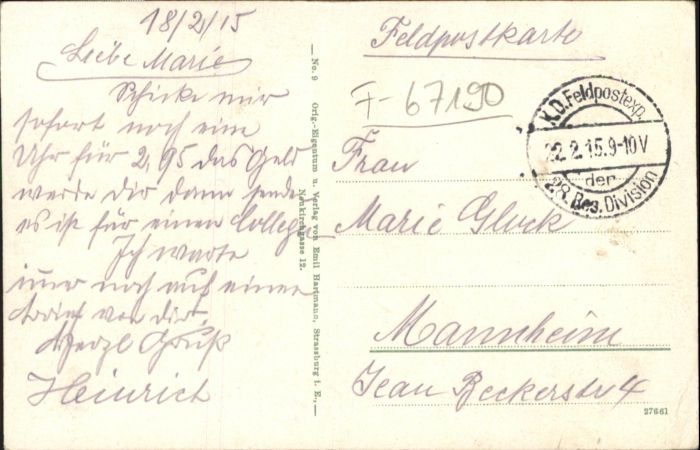 18/2/15
Liebe Marie
Schicke mir
sofort noch eine
Uhr für 2,95 das Geld
werde dir dann senden
es ist für einen Collegen
Ich warte
imer noch auf einen
Brief von dir.
Herzl Gruß
Heinrich
— No. 9 Orig.-Eigentum u. Verlag von Emil Hartmann, Strassburg i. E., —
Neukirchgasse 12.
Feldpostkarte
F-67190
K.D. Feldpostexp.
22.2.15.9-10V
der
28. Res. Division
Frau
Marie Gluck
Mannheim
Jean Beckerstr 4
27661